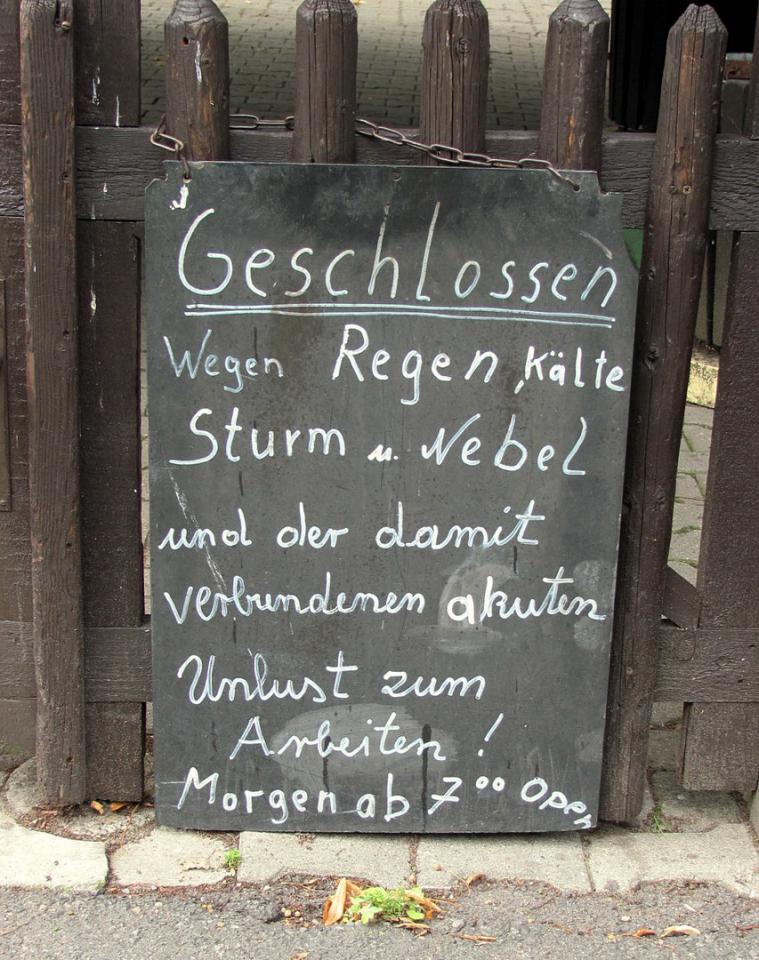 Geschlossen
Wegen Regen, Kälte
Sturm u. Nebel
und der damit
verbundenen akuten
Unlust zum
Arbeiten!
Morgen ab 7⁰⁰ Open